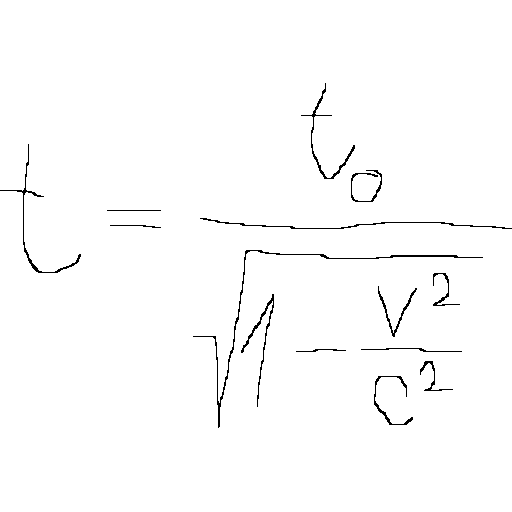 t = \frac{t_0}{\sqrt{1 - \frac{v^2}{c^2}}}